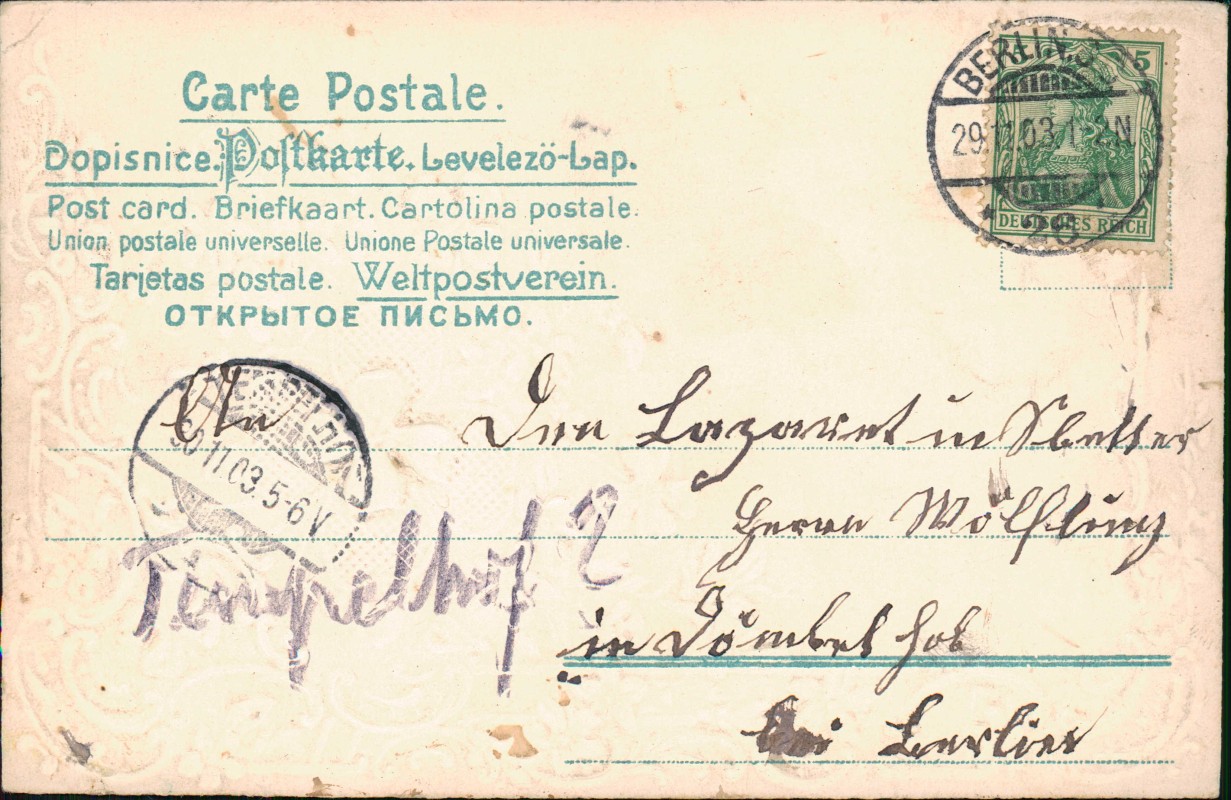 Carte Postale.
Dopisnice. Postkarte. Levelezö-Lap.
Post card. Briefkaart. Cartolina postale.
Union postale universelle. Unione Postale universale.
Tarjetas postale. Weltpostverein.
ОТКРЫТОЕ ПИСЬМО.
BERLIN.S
29.11.03.1-2N.
5
DEUTSCHES REICH
30 11 03. 5-6 V
An Den Lazaret in
Herrn Wölflung
Tempelhof 2
in Dömbel hob
bei Berlien